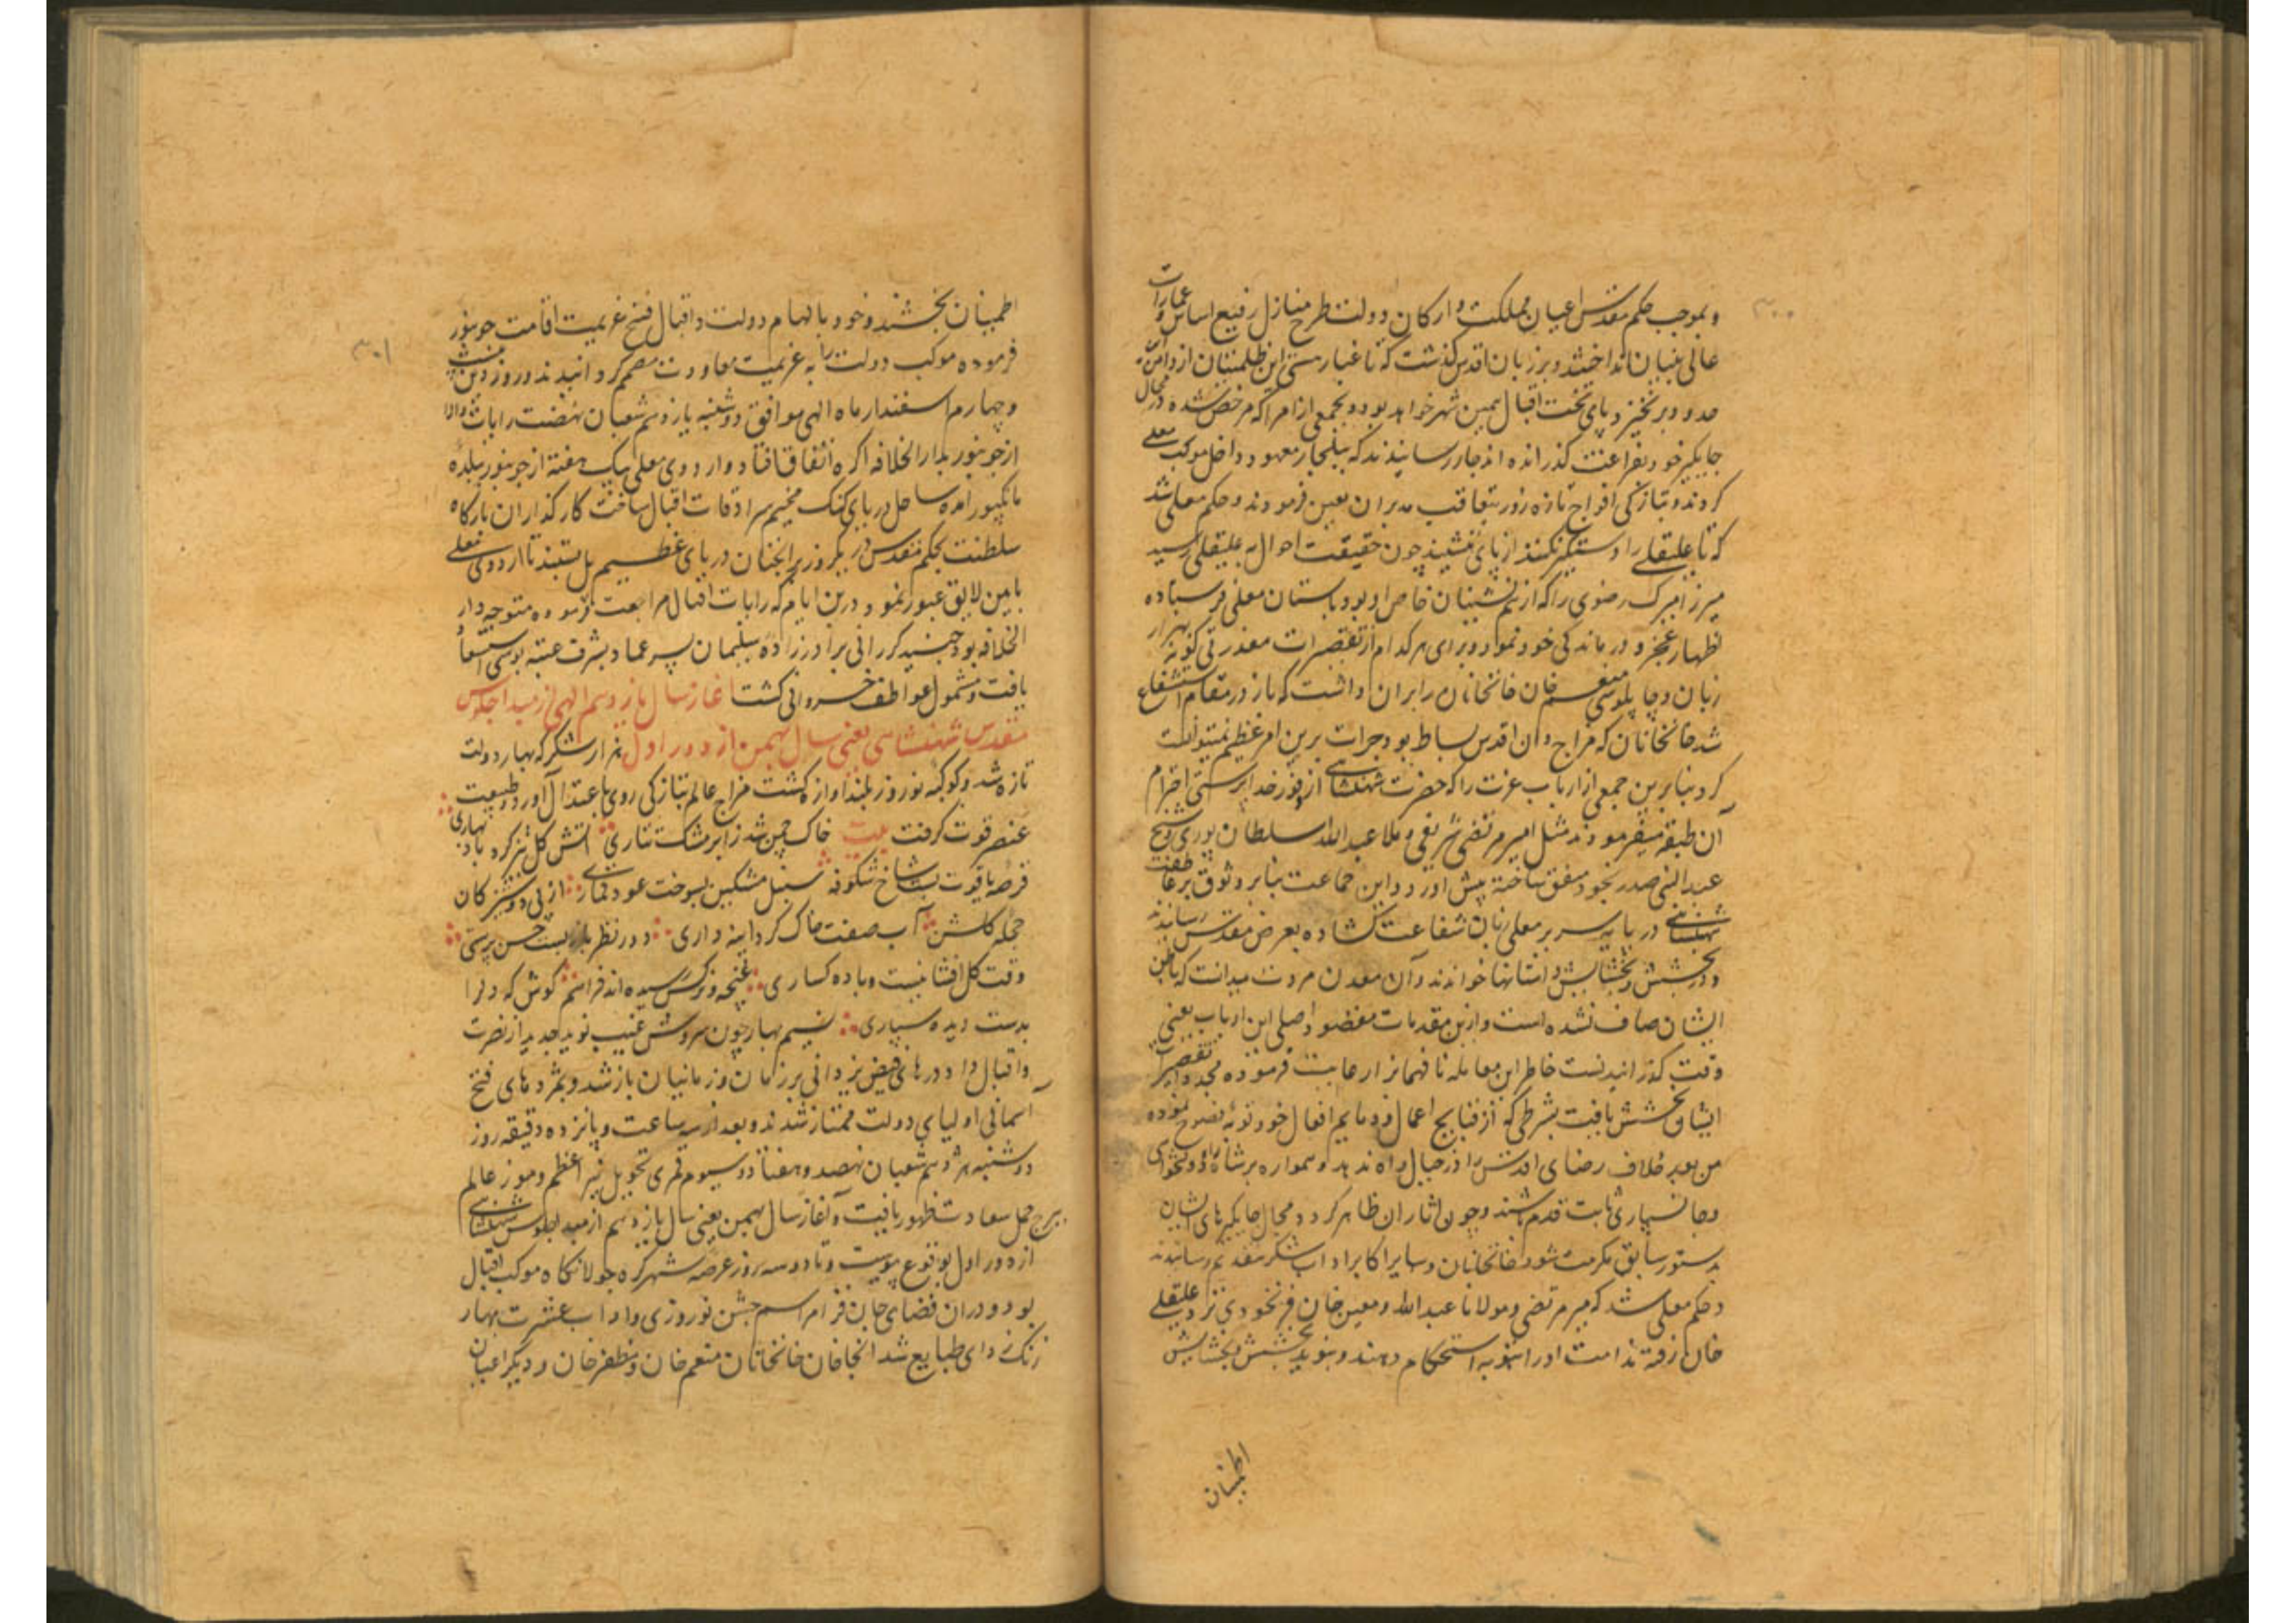 ۳۰۰
و بموجب حکم مقدس اعیان مملکت و ارکان دولت طرح منازل رفیع اساس و عمارات
عالی بنیان انداختند و بر زبان اقدس گذشت که تا غبار هستی این ظلمتیان از دامن
حدود برنخیزد پای تخت اقبال همین شهر خواهد بود و بجمعی از امرا که مرخص شده در محال
جایگیر خود بفراغت گذرانده اند جار رسانیدند که بیلجار معهود داخل موکب معلی
کردند و بتازگی افواج تازه زور بتعاقب مدبران تعین فرمودند و حکم معلی شد
که تا علیقلی را دستگیر نکنند از پای ننشینند چون حقیقت احوال به علیقلی رسید
میرزا میرک رضوی را که از همنشینان خاص او بود باستان معلی فرستاده
اظهار عجز و درماندگی خود نمود و برای هر کدام از تقصیرات معذرتی گونه بهزار
زبان و چاپلوسی منعم خان خانخانان را بران داشت که باز در مقام استشفاع
شد خانخانان که مزاج دان اقدس بساط بود جرات برین امر عظیم نمیتوانست
کرد بنابرین جمعی از ارباب عزت را که حضرت شهنشاهی از وفور خدا پرستی احترام
آن طبقه میفرمودند مثل امیر مرتضی شریفی و ملا عبدالله سلطان پوری و شیخ
عبدالنبی صدر بخود متفق ساخته پیش آورد و این جماعت بنابر وثوق بر عاطفت
شهنشاهی در پایه سریر معلی زبان شفاعت گشاده بعرض مقدس رسانیدند
و در بخشش و بخشایش داستانها خواندند و آن معدن مروت میدانست که باطن
ایشان صاف نشده است و ازین مقدمات مقصود اصلی این ارباب بغی
وقت گذرانیدنست خاطر این معامله نافهمانرا رعایت فرموده مجددا تقصیرات
ایشان بخشش یافت بشرطی که از قبایح اعمال و ذمایم افعال خود توبه نصوح نموده
من بعد خلاف رضای اقدس را در خیال راه ندهند و همواره بر شاهراه دولتخواهی
و جانسپاری ثابت قدم باشند و چون اثار ان ظاهر گردد محال جایگیرهای ایشان
بدستور سابق مکرمت شود خانخانان و سایر اکابر اداب شکر بتقدیم رسانیدند
و حکم معلی شد که میر مرتضی و مولانا عبدالله و معین خان فرنخودی نزد علیقلی
خان رفته ندامت او را بتوبه استحکام دهند و بنوید بخشش و بخشایش
اطمینان
۳۰۱
اطمینان بخشند و خود بالهام دولت و اقبال فسخ عزیمت اقامت جونپور
فرموده موکب دولت را به عزیمت معاودت مصمم گردانیدند و روز دین بیست
و چهارم اسفندارماه الهی موافق دوشنبه یازدهم شعبان نهضت رایات والا
از جونپور بدارالخلافه اگره اتفاق افتاد و اردوی معلی بیک هفته از جونپور ببلده
مانکپور امده ساحل دریای گنگ مخیم سرادقات اقبال ساخت کارگذاران بارگاه
سلطنت بحکم مقدس در یکروز برانچنان دریای عظیم پل بستند تا اردوی معلی
بایین لایق عبور نمود و درین ایام که رایات اقبال مراجعت فرموده متوجه دار
الخلافه بود جنید کررانی برادرزاده سلیمان پسر عماد بشرف عتبه بوسی استسعاد
یافت و مشمول عواطف خسروانی گشت اغاز سال یازدهم الهی از مبدا جلوس
مقدس شهنشاهی یعنی سال بهمن از دور اول هزار شکر که بهار دولت
تازه شد و کوکبه نوروز بلنداوازه گشت مزاج عالم بتازگی روی باعتدال آورد و طبیعت
عنصر قوت گرفت بیت خاک چمن شد ز ابر مشک تتاری اتش گل تیز کرد باد بهاری
قرصه یاقوت بست شاخ شکوفه سنبل مشکین بسوخت عود قماری از پی دوشیزگان
حجله گلشن آب صفت خاک کرد اینه داری در نظر باز نیست حسن پرستی
وقت گل افشانیست و باده گساری غنچه و نرگس رسیده اند فراهم گوش که دل را
بدست دیده سپاری نسیم بهار چون سروش غیب نوید جدید از نصرت
و اقبال داد و درهای فیض یزدانی بر زمان و زمانیان باز شد و بمژدهای فتح
آسمانی اولیای دولت ممتاز شدند و بعد از سه ساعت و پانزده دقیقه روز
دوشنبه هژدهم شعبان نهصد و هفتاد و سیوم قمری تحویل نیر اعظم و موز عالم
ببرج حمل سعادت ظهور یافت و آغاز سال بهمن یعنی سال یازدهم از مبدا جلوس شهنشاهی
از دور اول بوقوع پیوست و تا دو سه روز عرصه شهر کره جولانگاه موکب اقبال
بود و دران فضای جان فزا مراسم جشن نوروزی و اداب عشرت بهار
زنگ زدای طبایع شد انجا خان خانخانان منعم خان و مظفر خان و دیگر اعیان